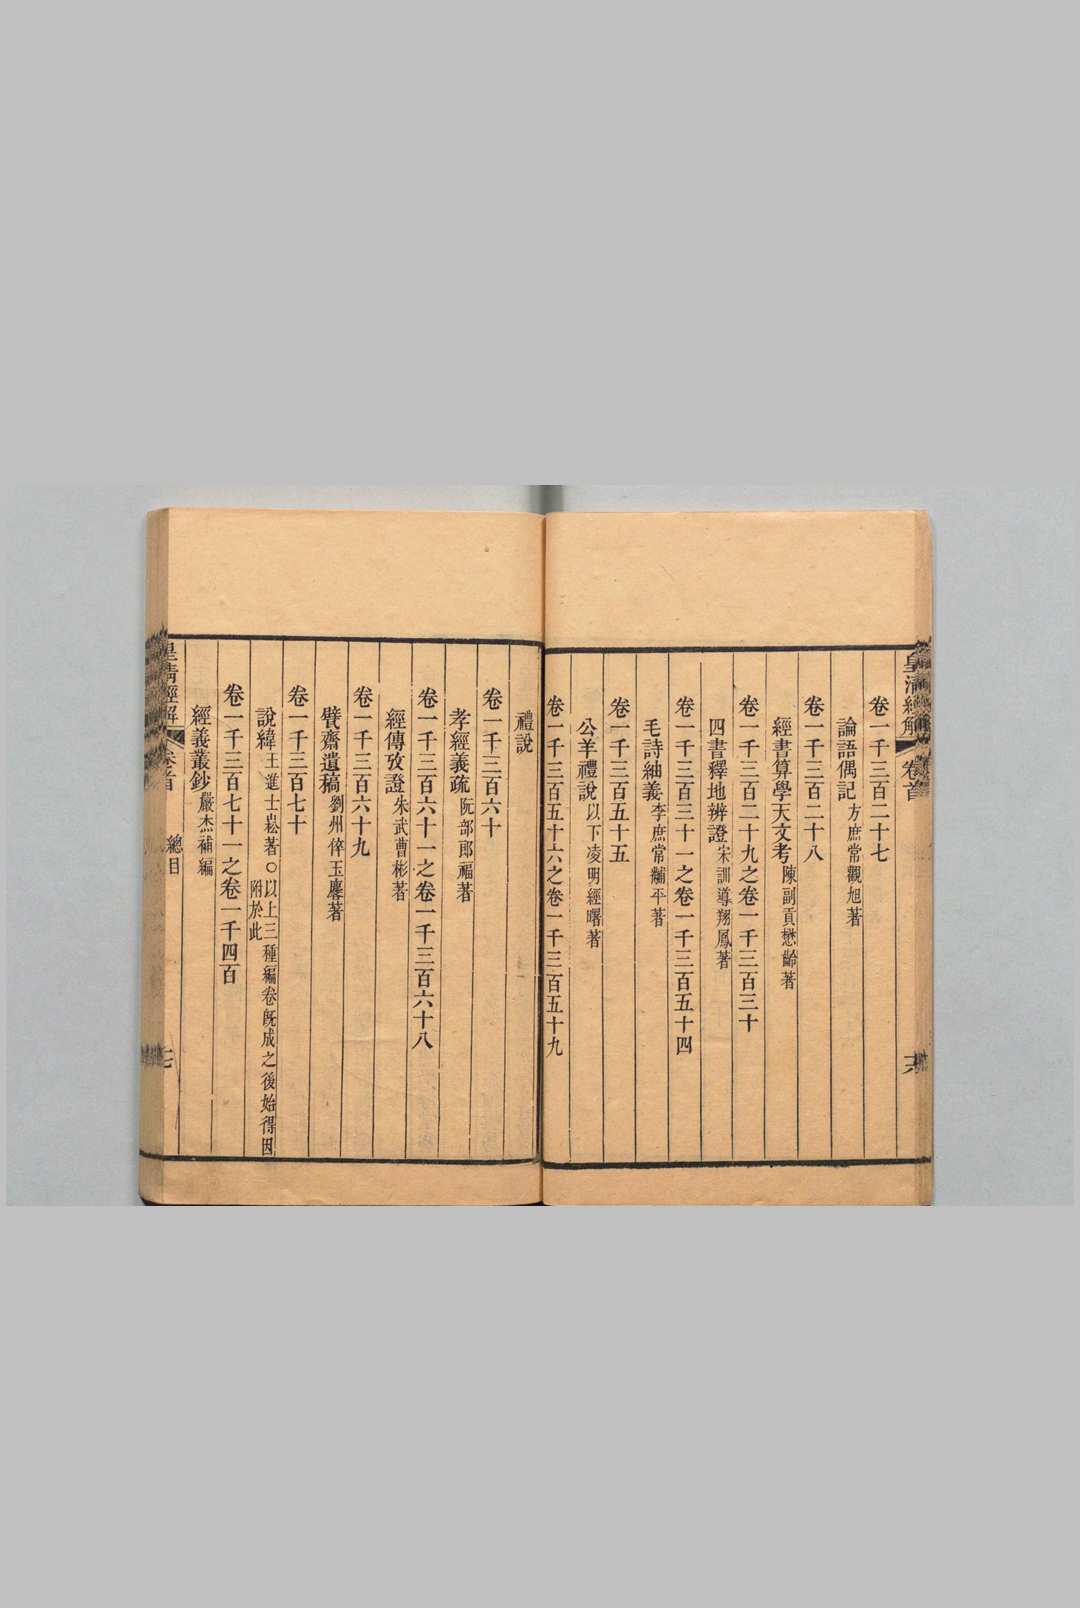 皇清經解 卷首
卷一千三百二十七
論語偶記方庶常觀旭著
卷一千三百二十八
經書算學天文考陳副貢懋齡著
卷一千三百二十九之卷一千三百三十
四書釋地辨證宋訓導翔鳳著
卷一千三百三十一之卷一千三百五十四
毛詩紬義李庶常黼平著
卷一千三百五十五
公羊禮說以下凌明經曙著
卷一千三百五十六之卷一千三百五十九
禮說
卷一千三百六十
孝經義疏阮部郎福著
卷一千三百六十一之卷一千三百六十八
經傳攷證朱武曹彬著
卷一千三百六十九
甓齋遺稿劉州倅玉麐著
卷一千三百七十
說緯王進士崧著○以上三種編卷旣成之後始得因
附於此
卷一千三百七十一之卷一千四百
經義叢鈔嚴杰補編
皇清經解 卷首 總目